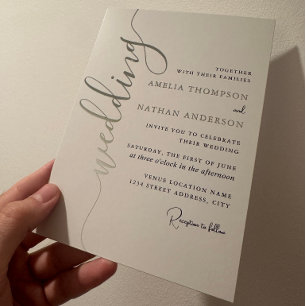 wedding
TOGETHER
WITH THEIR FAMILIES
AMELIA THOMPSON
and
NATHAN ANDERSON
INVITE YOU TO CELEBRATE
THEIR WEDDING
SATURDAY, THE FIRST OF JUNE
at three o'clock in the afternoon
VENUE LOCATION NAME
1234 STREET ADDRESS, CITY
Reception to follow